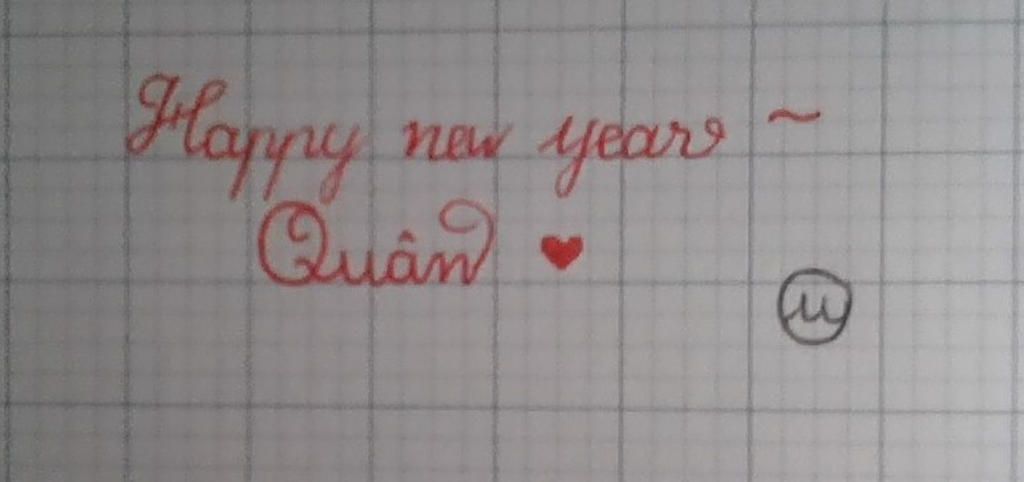 Happy new year ~
Quân ♥
u